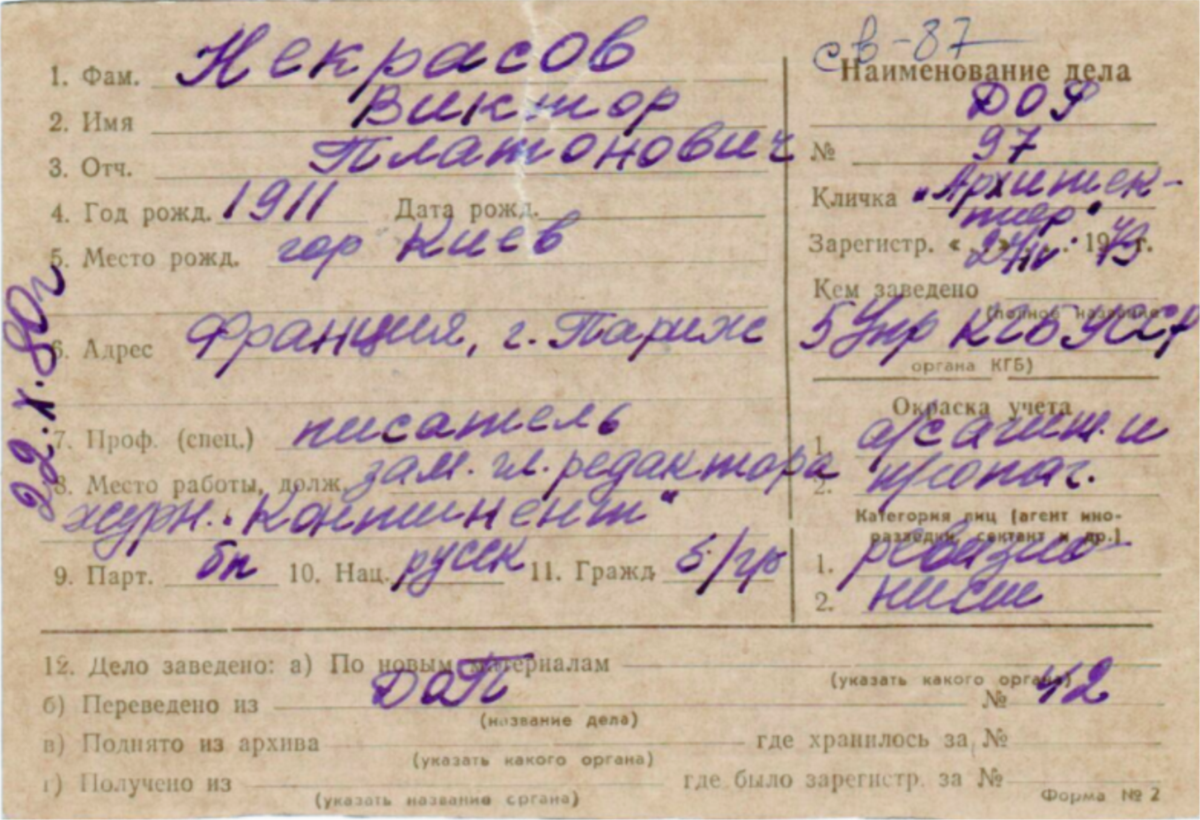 св-87
1. Фам. Некрасов
2. Имя Виктор
3. Отч. Платонович
4. Год рожд. 1911 Дата рожд.
5. Место рожд. гор Киев
6. Адрес Франция, г. Париж
7. Проф. (спец.) писатель
8. Место работы, долж. зам. гл. редактора
журн. "Континент"
9. Парт. бп 10. Нац. русск 11. Гражд. б/гр
22.X.80г
Наименование дела
ДОР
№ 97
Кличка "Архитек-
тор"
Зарегистр. « » 19 г.
Кем заведено
(полное название
5 Упр КГБ УССР
органа КГБ)
Окраска учета
1. а/с агит. и
2. пропаг.
Категория лиц (агент ино-
разведки, сектант и др.)
1. ревизио-
2. нист
12. Дело заведено: а) По новым материалам
(указать какого органа)
б) Переведено из ДОП № 42
(название дела)
в) Поднято из архива где хранилось за №
(указать какого органа)
г) Получено из где было зарегистр. за №
(указать название органа)
Форма № 2